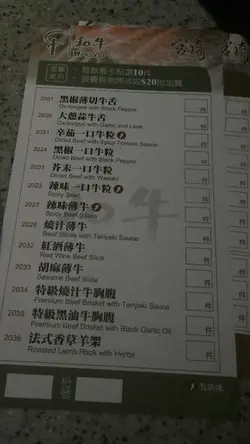 和牛
2001 黑椒薄切牛舌
Ox-tongue with Black Pepper
2020 大蔥蒜牛舌
Ox-tongue with Garlic and Leek
辛茄一口牛粒
Diced Beef with Spicy Tomato Sauce
黑椒一口牛粒
Diced Beef with Black Pepper
2031 芥末一口牛粒
Diced Beef with Wasabi
2023 辣味一口牛粒
Spicy Beef
2027 辣味薄牛
Spicy Beef Slices
2028 燒汁薄牛
Beef Slices with Teriyaki Sauce
2032 紅酒薄牛
Red Wine Beef Slice
2033 胡麻薄牛
Sesame Beef Slice
2034 特級燒汁牛胸腹
Premium Beef Brisket with Teriyaki Sauce
2035 特級黑油牛胸腹
Premium Beef Brisket with Black Garlic Oil
2036 法式香草羊架
Roasted Lamb Rack with Herbs
件
件
件
件
件
件
件
件
件
件
件
件
件